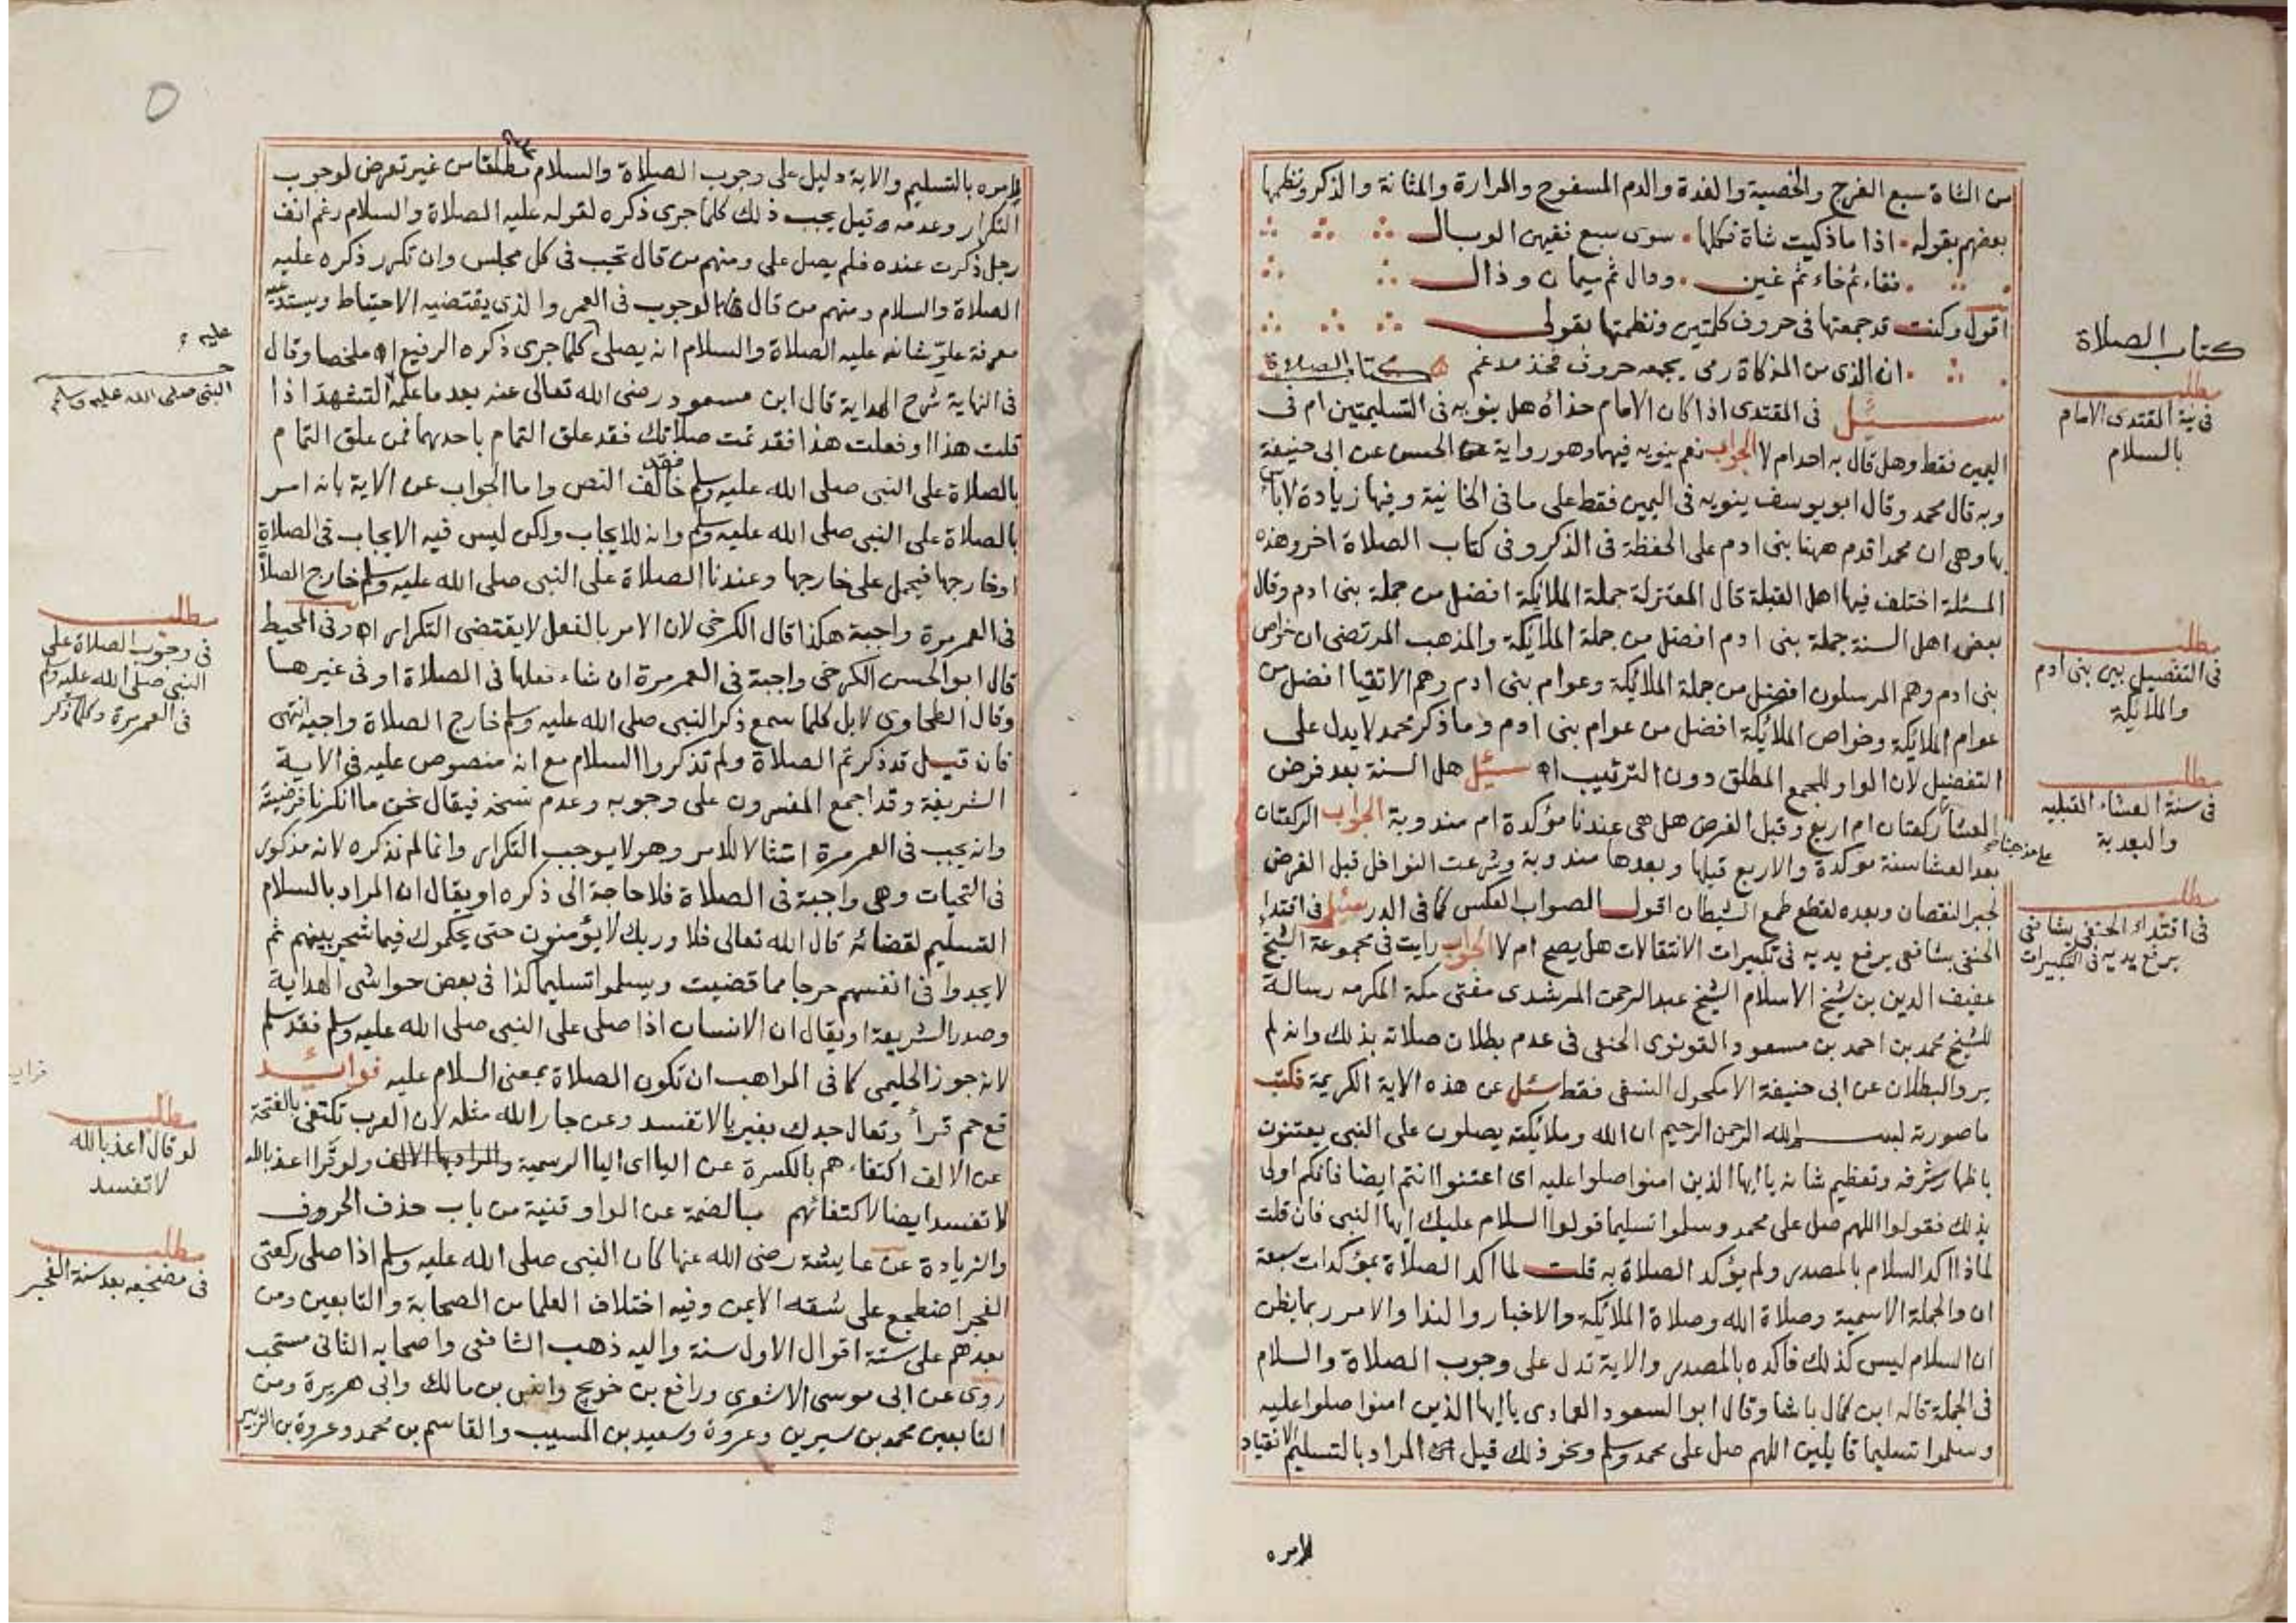 من الشاة سبع الفرج والخصية والغدة والدم المسفوح والمرارة والمثانة والذكر ونظمها
بعضهم بقوله اذا ماذكيت شاة فكلها سوى سبع ففيهن الوبال
ففاء ثم خاء ثم غين ودال ثم ميمان وذال
اقول وكنت قد جمعتها في حروف كلمتين ونظمتها بقولى
ان الذى من المذكاة رمى يجمعه حروف فخذ مدغم كتاب الصلاة
سئل في المقتدى اذا كان الامام حذاه هل ينويه فى التسليمتين ام فى
اليمين فقط وهل قال به احد ام لا الجواب نعم ينويه فيهما وهو رواية الحسن عن ابى حنيفة
وبه قال محمد وقال ابو يوسف ينويه فى اليمين فقط على ما فى الخانية وفيها زيادة لا باس
بها وهى ان محمدا قدم ههنا بنى ادم على الحفظة فى الذكر وفى كتاب الصلاة اخر وهذه
المسئلة اختلف فيها اهل القبلة قال المعتزلة جملة الملائكة افضل من جملة بنى ادم وقال
بعض اهل السنة جملة بنى ادم افضل من جملة الملائكة والمذهب المرتضى ان خواص
بنى ادم وهم المرسلون افضل من جملة الملائكة وعوام بنى ادم وهم الاتقيا افضل من
عوام الملائكة وخواص الملائكة افضل من عوام بنى ادم وما ذكر محمد لا يدل على
التفضيل لان الواو للجمع المطلق دون الترتيب اه سئل هل السنة بعد فرض
العشا ركعتان ام اربع وقبل الفرض هل هى عندنا مؤكدة ام مندوبة الجواب الركعتان
بعد العشا سنة موكدة والاربع قبلها وبعدها مندوبة وشرعت النوافل قبل الفرض
لجبر النقصان وبعده لقطع طمع الشيطان اقول الصواب العكس كما فى الدر سئل فى اقتداء
الحنفى بشافعى يرفع يديه فى تكبيرات الانتقالات هل يصح ام لا الجواب رايت فى مجموعة الشيخ
عفيف الدين بن شيخ الاسلام الشيخ عبد الرحمن المرشدى مفتى مكة المكرمه رسالة
للشيخ محمد بن احمد بن مسعود القونوى الحنفى فى عدم بطلان صلاته بذلك وانه لم
يرو البطلان عن ابى حنيفة الا مكحول النسفى فقط سئل عن هذه الاية الكريمة فكتب
ما صورته بسم الله الرحمن الرحيم ان الله وملائكته يصلون على النبى يعتنون
باظهار شرفه وتعظيم شانه يا ايها الذين امنوا صلوا عليه اى اعتنوا انتم ايضا فانكم اولى
بذلك فقولوا اللهم صل على محمد وسلموا تسليما قولوا السلام عليك ايها النبى فان قلت
لماذا اكد السلام بالمصدر ولم يؤكد الصلاة به قلت لما اكد الصلاة بمؤكدات سبعة
ان والجملة الاسمية وصلاة الله وصلاة الملائكة والاخبار والندا والامر ربما يظن
ان السلام ليس كذلك فاكده بالمصدر والاية تدل على وجوب الصلاة والسلام
فى الجملة قاله ابن كمال باشا وقال ابو السعود العمادى يا ايها الذين امنوا صلوا عليه
وسلموا تسليما قايلين اللهم صل على محمد وسلم ونحو ذلك قيل المراد بالتسليم الانقياد
لامره
كتاب الصلاة
مطلب
فى نية المقتدى الامام
بالسلام
مطلب
فى التفضيل بين بنى ادم
والملائكة
مطلب
فى سنة العشاء القبليه
والبعدية
مطلب
فى اقتداء الحنفى بشافعى
يرفع يديه فى التكبيرات
لامره بالتسليم والاية دليل على وجوب الصلاة والسلام مطلقا من غير تعرض لوجوب
التكرار وعدمه وقيل يجب ذلك كلما جرى ذكره لقوله عليه الصلاة والسلام رغم انف
رجل ذكرت عنده فلم يصل على ومنهم من قال تجب فى كل مجلس وان تكرر ذكره عليه
الصلاة والسلام ومنهم من قال الوجوب فى العمر والذى يقتضيه الاحتياط ويستدعيه
معرفة علو شانه عليه الصلاة والسلام ان يصلى كلما جرى ذكره الرفيع اه ملخصا وقال
فى النهاية شرح الهداية قال ابن مسعود رضى الله تعالى عنه بعد ما علمه التشهد اذا
قلت هذا او فعلت هذا فقد تمت صلاتك فقد علق التمام باحدهما فمن علق التمام
بالصلاة على النبى صلى الله عليه وسلم فقد خالف النص واما الجواب عن الاية بانه امر
بالصلاة على النبى صلى الله عليه وسلم وانه للايجاب ولكن ليس فيه الايجاب فى الصلاة
او خارجها فيحمل على خارجها وعندنا الصلاة على النبى صلى الله عليه وسلم خارج الصلاة
فى العمر مرة واجبة هكذا قال الكرخى لان الامر بالفعل لا يقتضى التكرار اه وفى المحيط
قال ابو الحسن الكرخى واجبة فى العمر مرة ان شاء فعلها فى الصلاة او فى غيرها
وقال الطحاوى لا بل كلما سمع ذكر النبى صلى الله عليه وسلم خارج الصلاة واجبه انتهى
فان قيل قد ذكرتم الصلاة ولم تذكروا السلام مع انه منصوص عليه فى الاية
الشريفة وقد اجمع المفسرون على وجوبه وعدم نسخه فيقال نحن ما انكرنا فرضيته
وانه يجب فى العمر مرة امتثالا للامر وهو لا يوجب التكرار وانما لم نذكره لانه مذكور
فى التحيات وهى واجبة فى الصلاة فلا حاجة الى ذكره او يقال ان المراد بالسلام
التسليم لقضائه قال الله تعالى فلا وربك لا يؤمنون حتى يحكموك فيما شجر بينهم ثم
لا يجدوا فى انفسهم حرجا مما قضيت ويسلموا تسليما كذا فى بعض حواشى الهداية
وصدر الشريعة او يقال ان الانسان اذا صلى على النبى صلى الله عليه وسلم فقد سلم
لانه جوز الحليمى كما فى المواهب ان تكون الصلاة بمعنى السلام عليه فوائد
قع حم قرأ وتعال جدك بغير يا لا تفسد وعن جار الله مثله لان العرب تكتفى بالفتحة
عن الالف اكتفاءهم بالكسرة عن اليا اى اليا الرسمية ولو قرا اعذ بالله
لا تفسد ايضا لاكتفائهم بالضمة عن الواو قنية من باب حذف الحروف
والزيادة عن عايشة رضى الله عنها كان النبى صلى الله عليه وسلم اذا صلى ركعتى
الفجر اضطجع على شقه الايمن وفيه اختلاف العلما من الصحابة والتابعين ومن
بعدهم على ستة اقوال الاول سنة واليه ذهب الشافعى واصحابه الثانى مستحب
روى عن ابى موسى الاشعرى ورافع بن خويج وانس بن مالك وابى هريرة ومن
التابعين محمد بن سيرين وعروة وسعيد بن المسيب والقاسم بن محمد وعروة بن الزبير
عليه
النبى صلى الله عليه وسلم
مطلب
فى وجوب الصلاة على
النبى صلى الله عليه وسلم
فى العمر مرة وكلما ذكر
مطلب
لو قال اعذ بالله
لا تفسد
مطلب
فى مضجعه بعد سنة الفجر